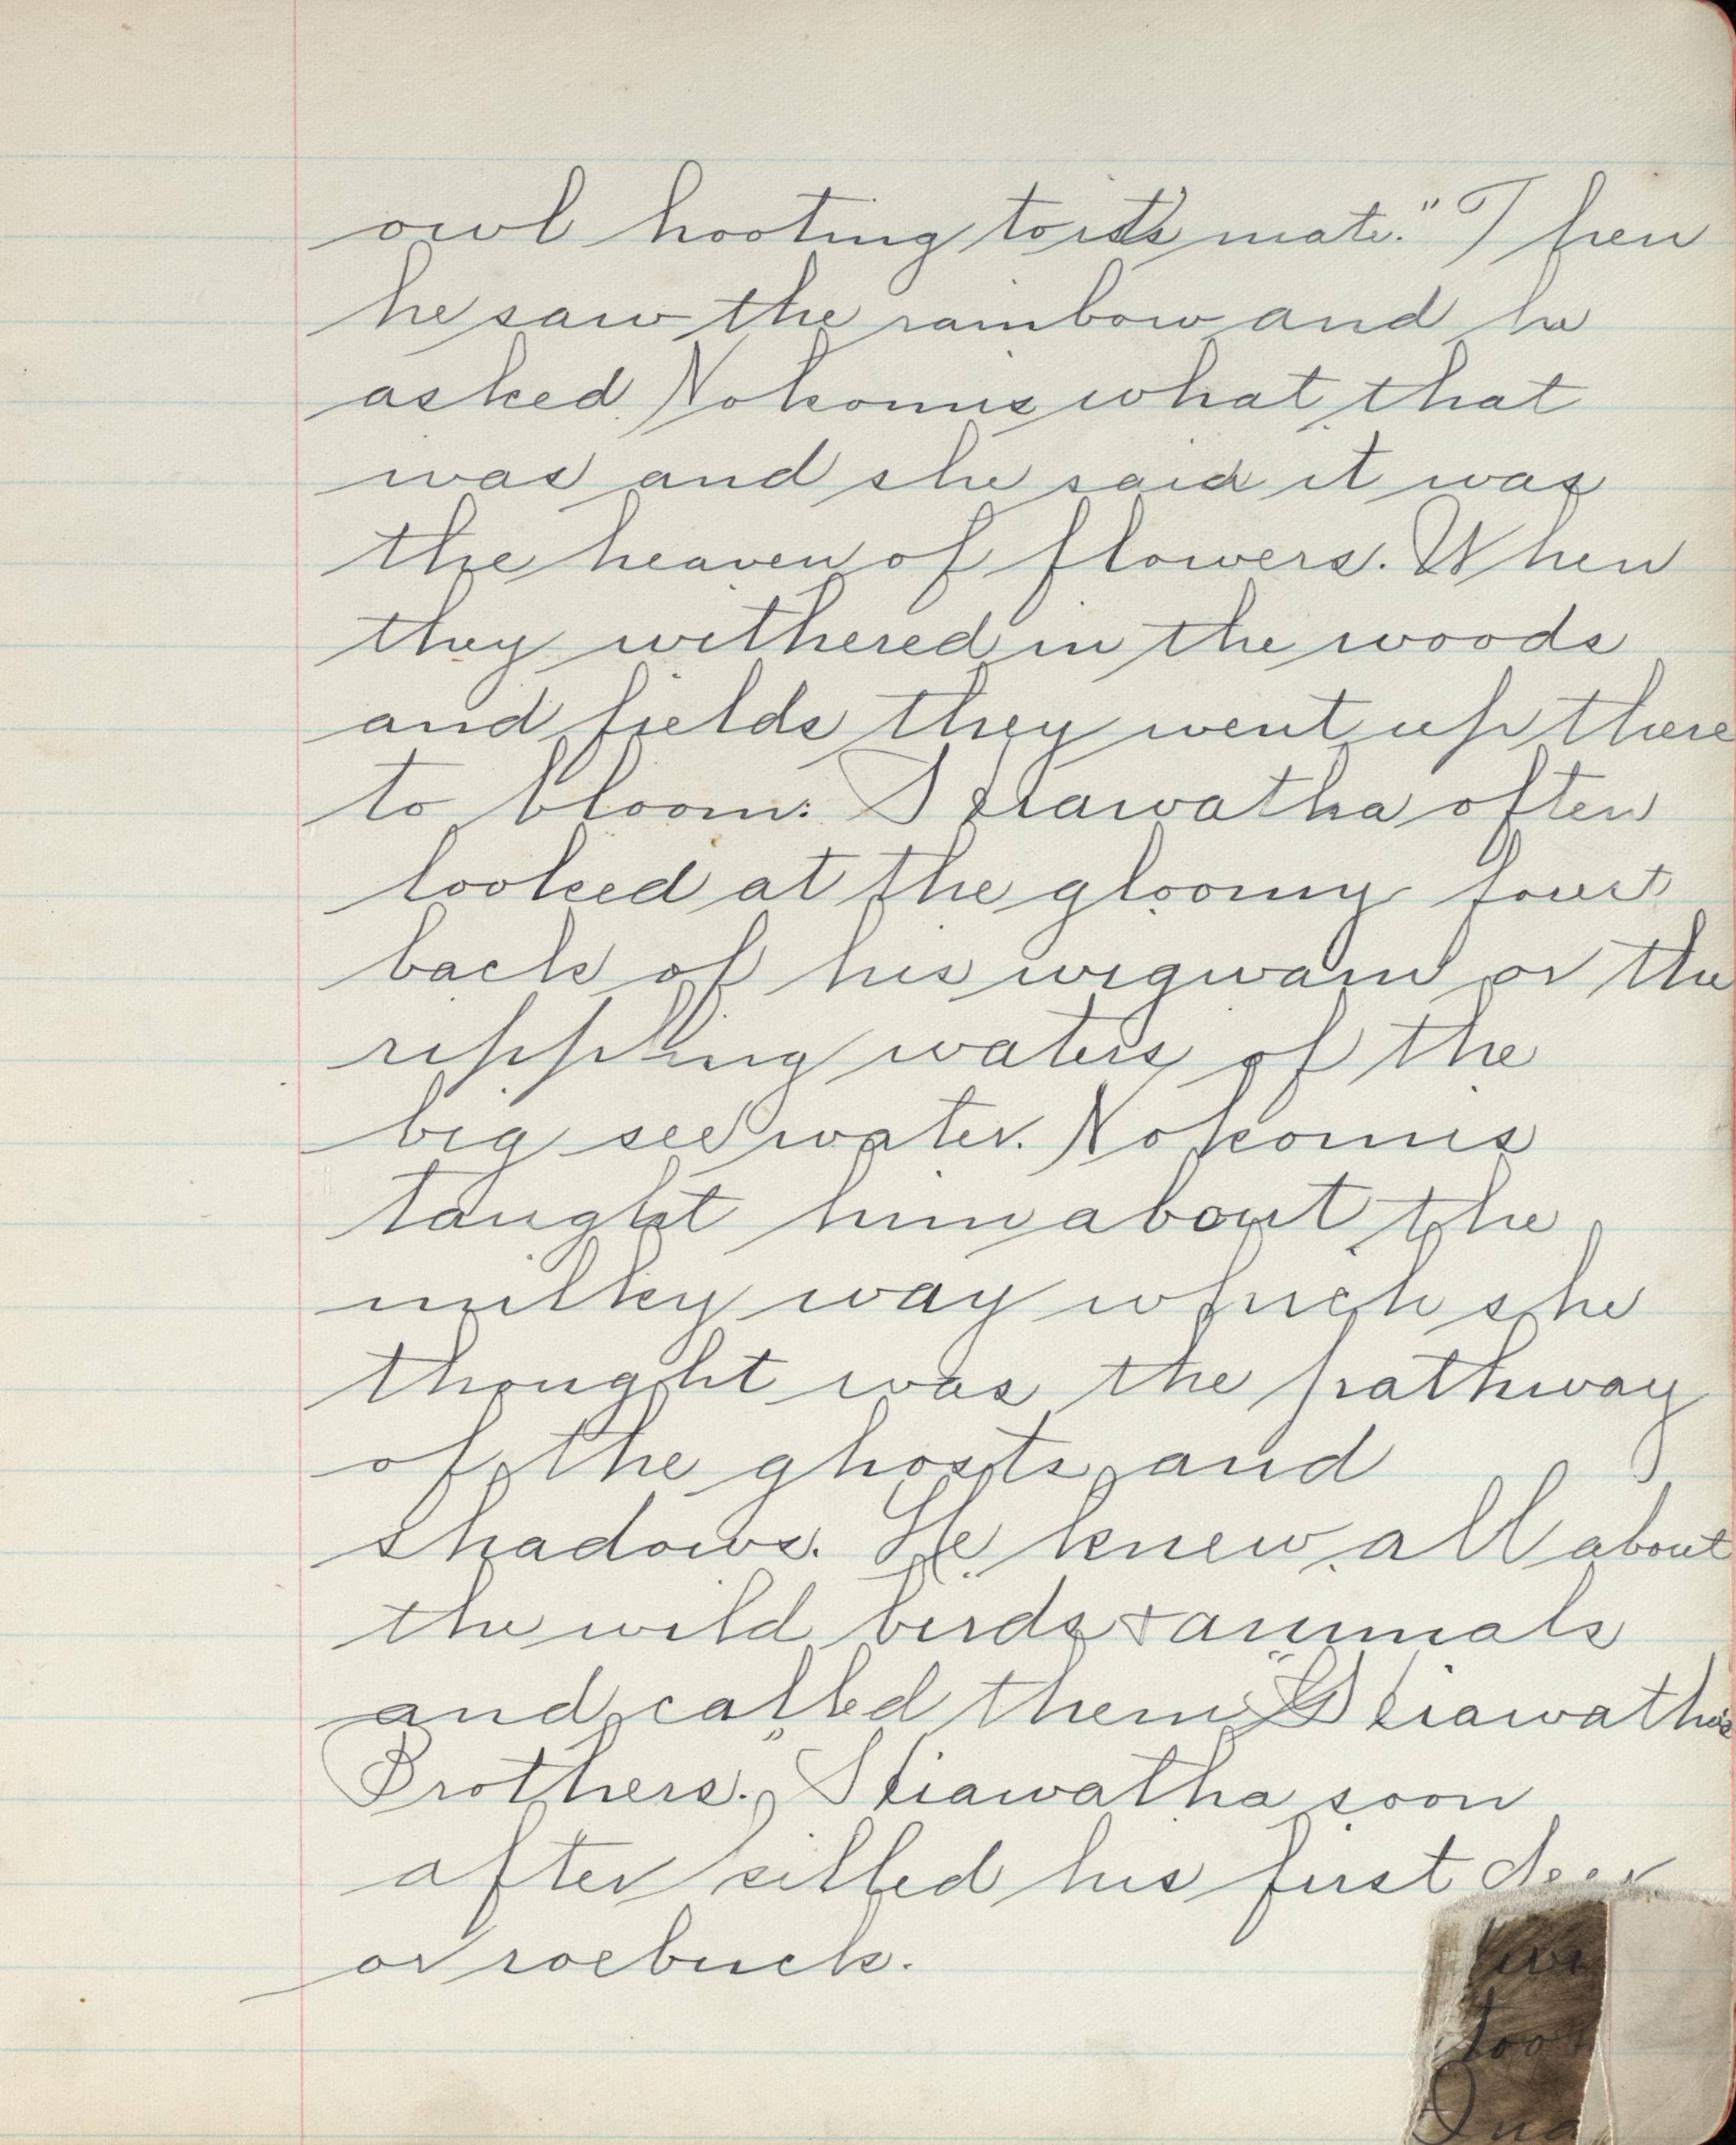 owl hooting to it's mate." Then
he saw the rainbow and he
asked Nokomis what that
was and she said it was
the heaven of flowers. When
they withered in the woods
and fields they went up there
to bloom. Hiawatha often
looked at the gloomy
back of his wigwam or the
rippling waters of the
big see water. Nokomis
taught him about the
milky way which she
thought was the pathway
of the ghosts and
shadows. He knew all about
the wild birds & animals
and called them "Hiawatha's
Brothers." Hiawatha soon
after killed his first deer
or roebuck.
too